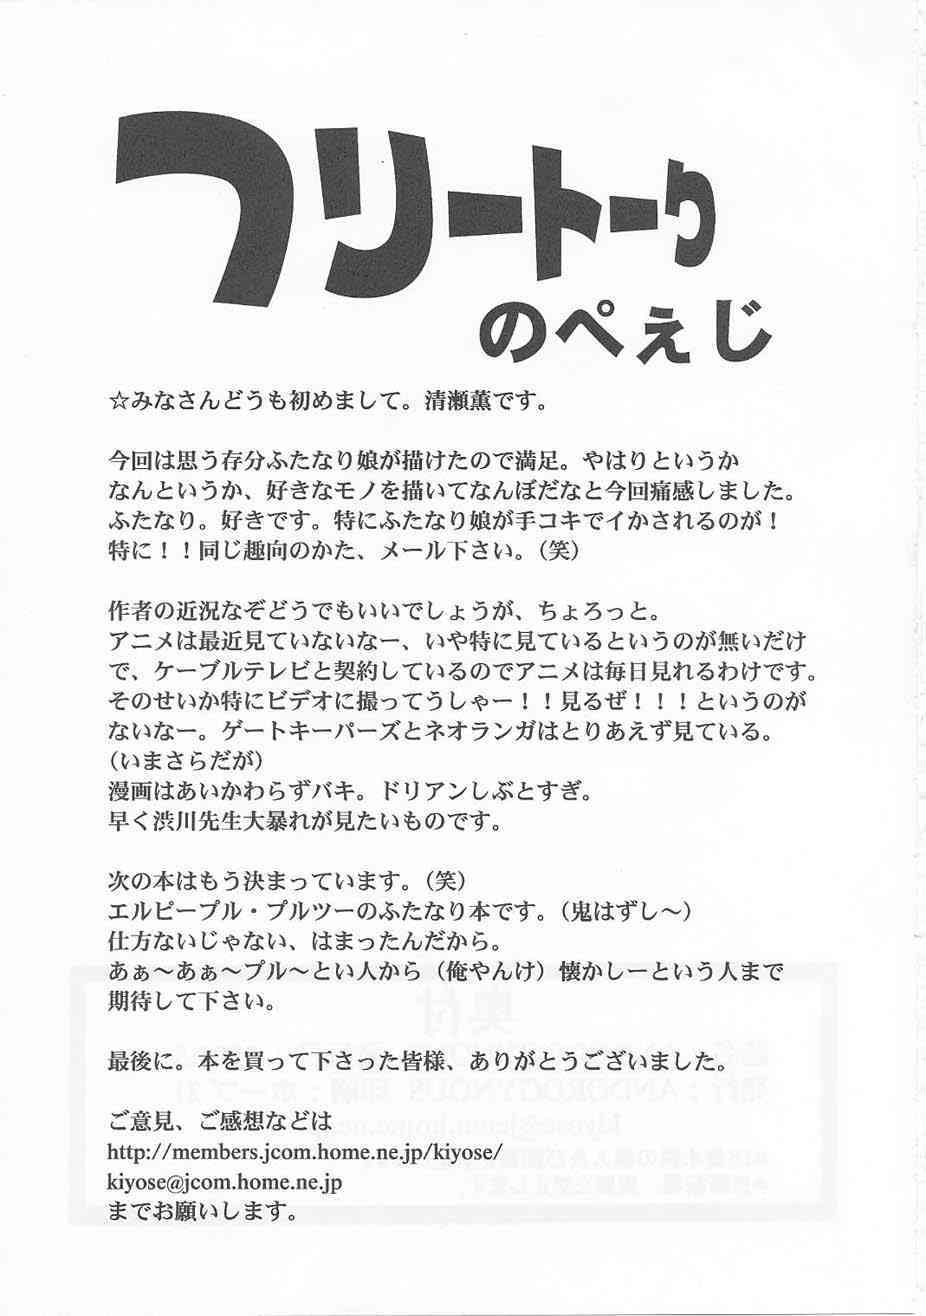 フリートーク
のぺぇじ
☆みなさんどうも初めまして。清瀬薫です。
今回は思う存分ふたなり娘が描けたので満足。やはりというか
なんというか、好きなモノを描いてなんぼだなと今回痛感しました。
ふたなり。好きです。特にふたなり娘が手コキでイかされるのが！
特に！！同じ趣向のかた、メール下さい。（笑）
作者の近況なぞどうでもいいでしょうが、ちょろっと。
アニメは最近見ていないなー、いや特に見ているというのが無いだけ
で、ケーブルテレビと契約しているのでアニメは毎日見れるわけです。
そのせいか特にビデオに撮ってうしゃー！！見るぜ！！！というのが
ないなー。ゲートキーパーズとネオランガはとりあえず見ている。
（いまさらだが）
漫画はあいかわらずバキ。ドリアンしぶとすぎ。
早く渋川先生大暴れが見たいものです。
次の本はもう決まっています。（笑）
エルピープル・プルツーのふたなり本です。（鬼はずし～）
仕方ないじゃない、はまったんだから。
あぁ～あぁ～プル～とい人から（俺やんけ）懐かしーという人まで
期待して下さい。
最後に。本を買って下さった皆様、ありがとうございました。
ご意見、ご感想などは
http://members.jcom.home.ne.jp/kiyose/
kiyose@jcom.home.ne.jp
までお願いします。